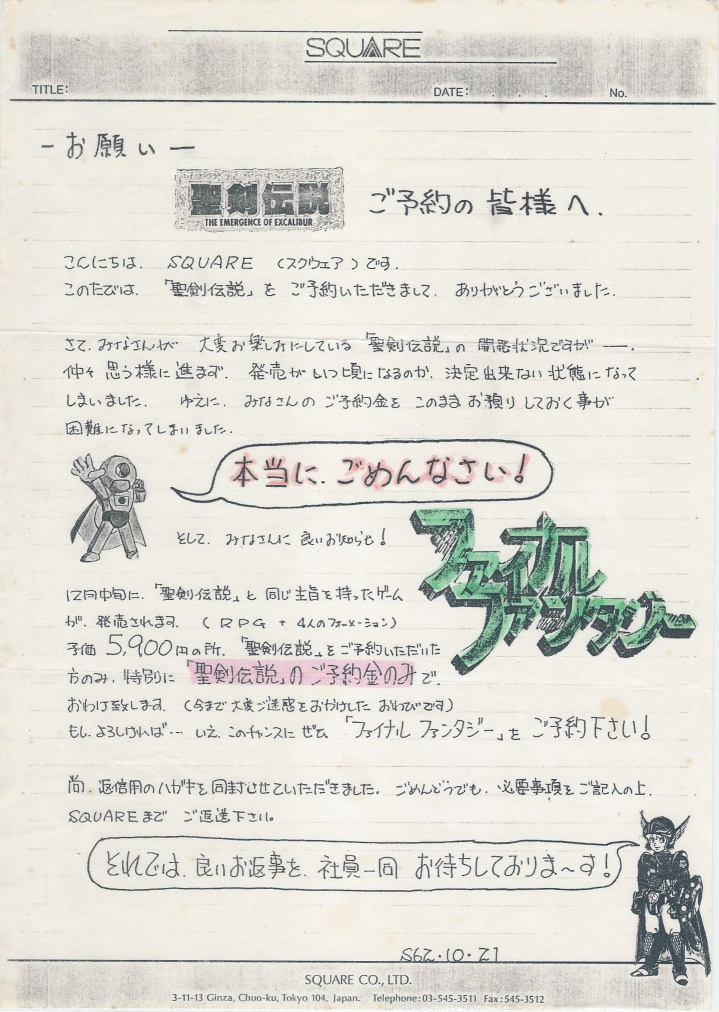 SQUARE
TITLE: DATE: . . . No.
－お願い－
聖剣伝説
THE EMERGENCE OF EXCALIBUR
ご予約の 皆様へ.
こんにちは. SQUARE (スクウェア)です.
このたびは.「聖剣伝説」を ご予約いただきまして. ありがとうございました.
さて.みなさんが 大変お楽しみにしている「聖剣伝説」の 開発状況ですが ー.
仲々 思う様に進まず. 発売がいつ頃になるのか. 決定出来ない 状態になって
しまいました. ゆえに. みなさんの ご予約金を このまま お預りしておく事が
困難になってしまいました.
本当に.ごめんなさい!
そして. みなさんに 良いお知らせ!
ファイナル
ファンタジー
12月中旬に.「聖剣伝説」と 同じ主旨を持ったゲーム
が. 発売されます. (RPG + 4人のフォーメーション)
予価 5,900円の所.「聖剣伝説」をご予約いただいた
方のみ. 特別に「聖剣伝説」のご予約金のみで.
おわけ致します. (今まで大変ご迷惑をおかけした おわびです)
もし.よろしければ… いえ.このチャンスに ぜひ 「ファイナル ファンタジー」を ご予約下さい!
尚. 返信用のハガキを同封させていただきました. ごめんどうでも. 必要事項をご記入の上.
SQUAREまで ご返送下さい。
それでは.良いお返事を. 社員一同 お待ちしておりま～す!
S62.10.21
SQUARE CO., LTD.
3-11-13 Ginza, Chuo-ku, Tokyo 104, Japan. Telephone: 03-545-3511 Fax: 545-3512